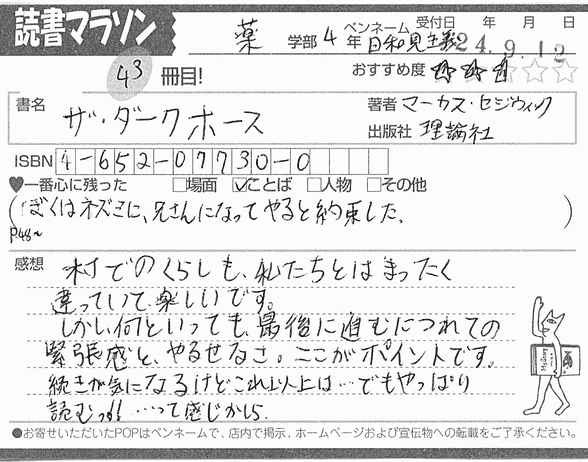 読書マラソン
薬 学部 4 年 ペンネーム 日和見主義 受付日 年 月 日
24.9.12
43 冊目! おすすめ度 ★★★☆☆
書名 ザ・ダークホース
著者 マーカス・セジウィック
出版社 理論社
ISBN 4-652-07730-0
♥一番心に残った □場面 ☑ことば □人物 □その他
(ぼくはネズミに、兄さんになってやると約束した。)
P.48~
感想 村でのくらしも、私たちとはまったく
違っていて楽しいです。
しかし何といっても、最後に進むにつれての
緊張感と、やるせなさ。ここがポイントです。
続きが気になるけどこれ以上は…でもやっぱり
読むっ!! …って感じかしら.
●お寄せいただいたPOPはペンネームで、店内で掲示、ホームページおよび宣伝物への転載をご了承ください。